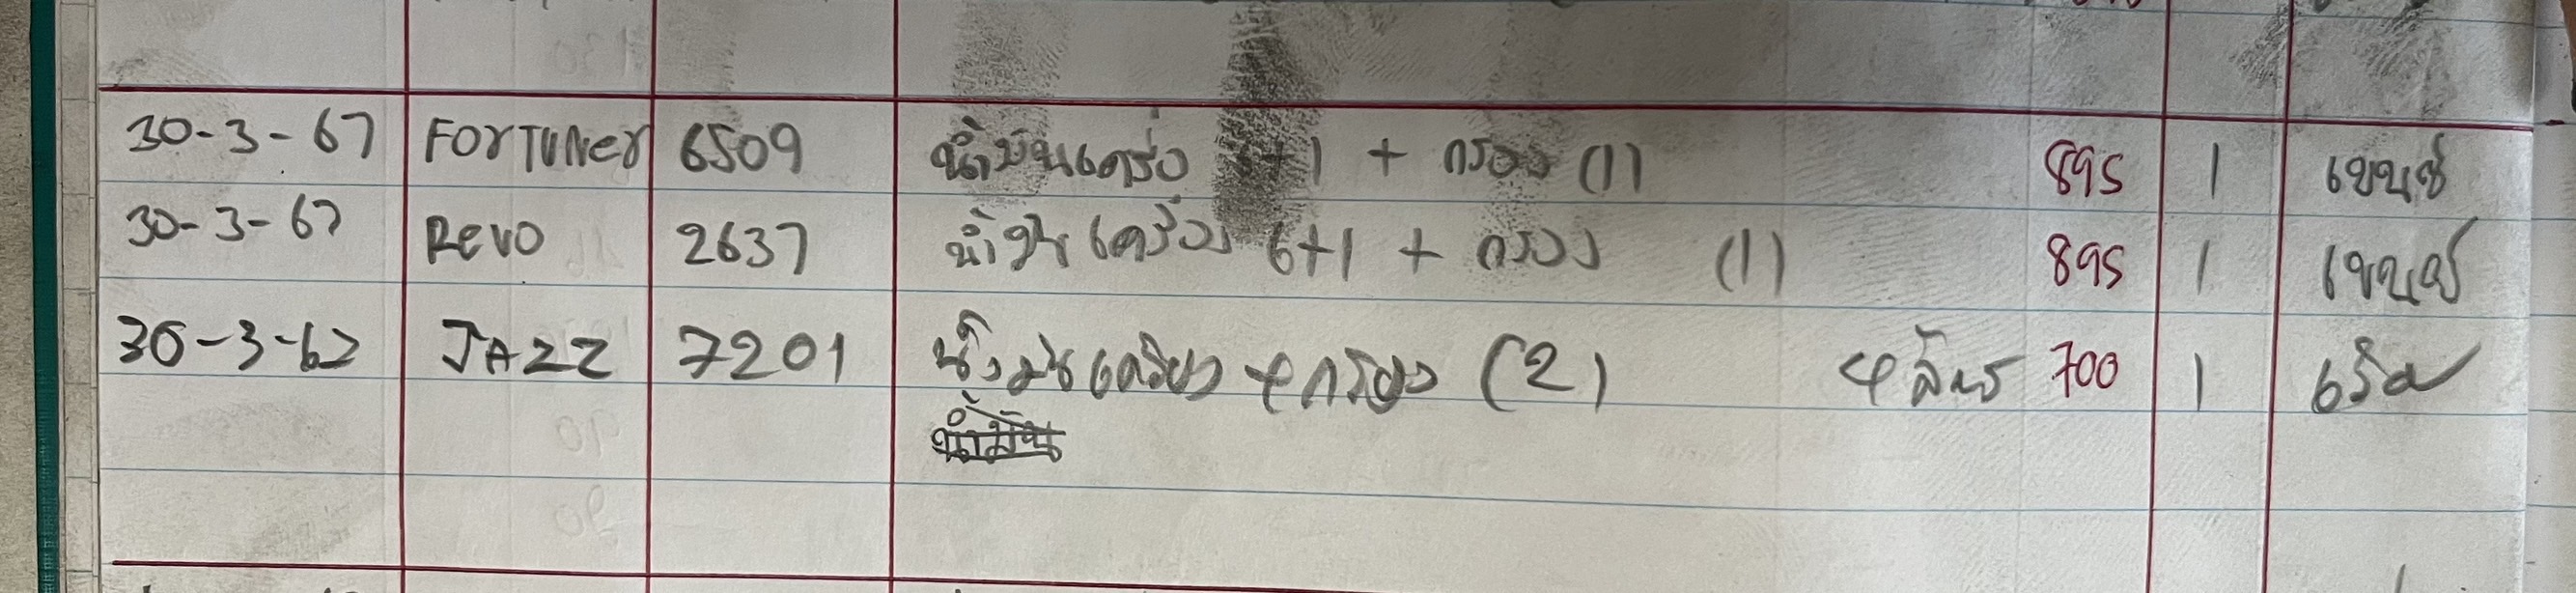 30-3-67 FORTUNER 6509 น้ำมันเครื่อง 6+1 + กรอง (1) 895 1 เขนย์
30-3-67 REVO 2637 น้ำมันเครื่อง 6+1 + กรอง (1) 895 1 เขนย์
30-3-67 JAZZ 7201 น้ำมันเครื่อง + กรอง (2) 4 ลิตร 700 1
น้ำมัน